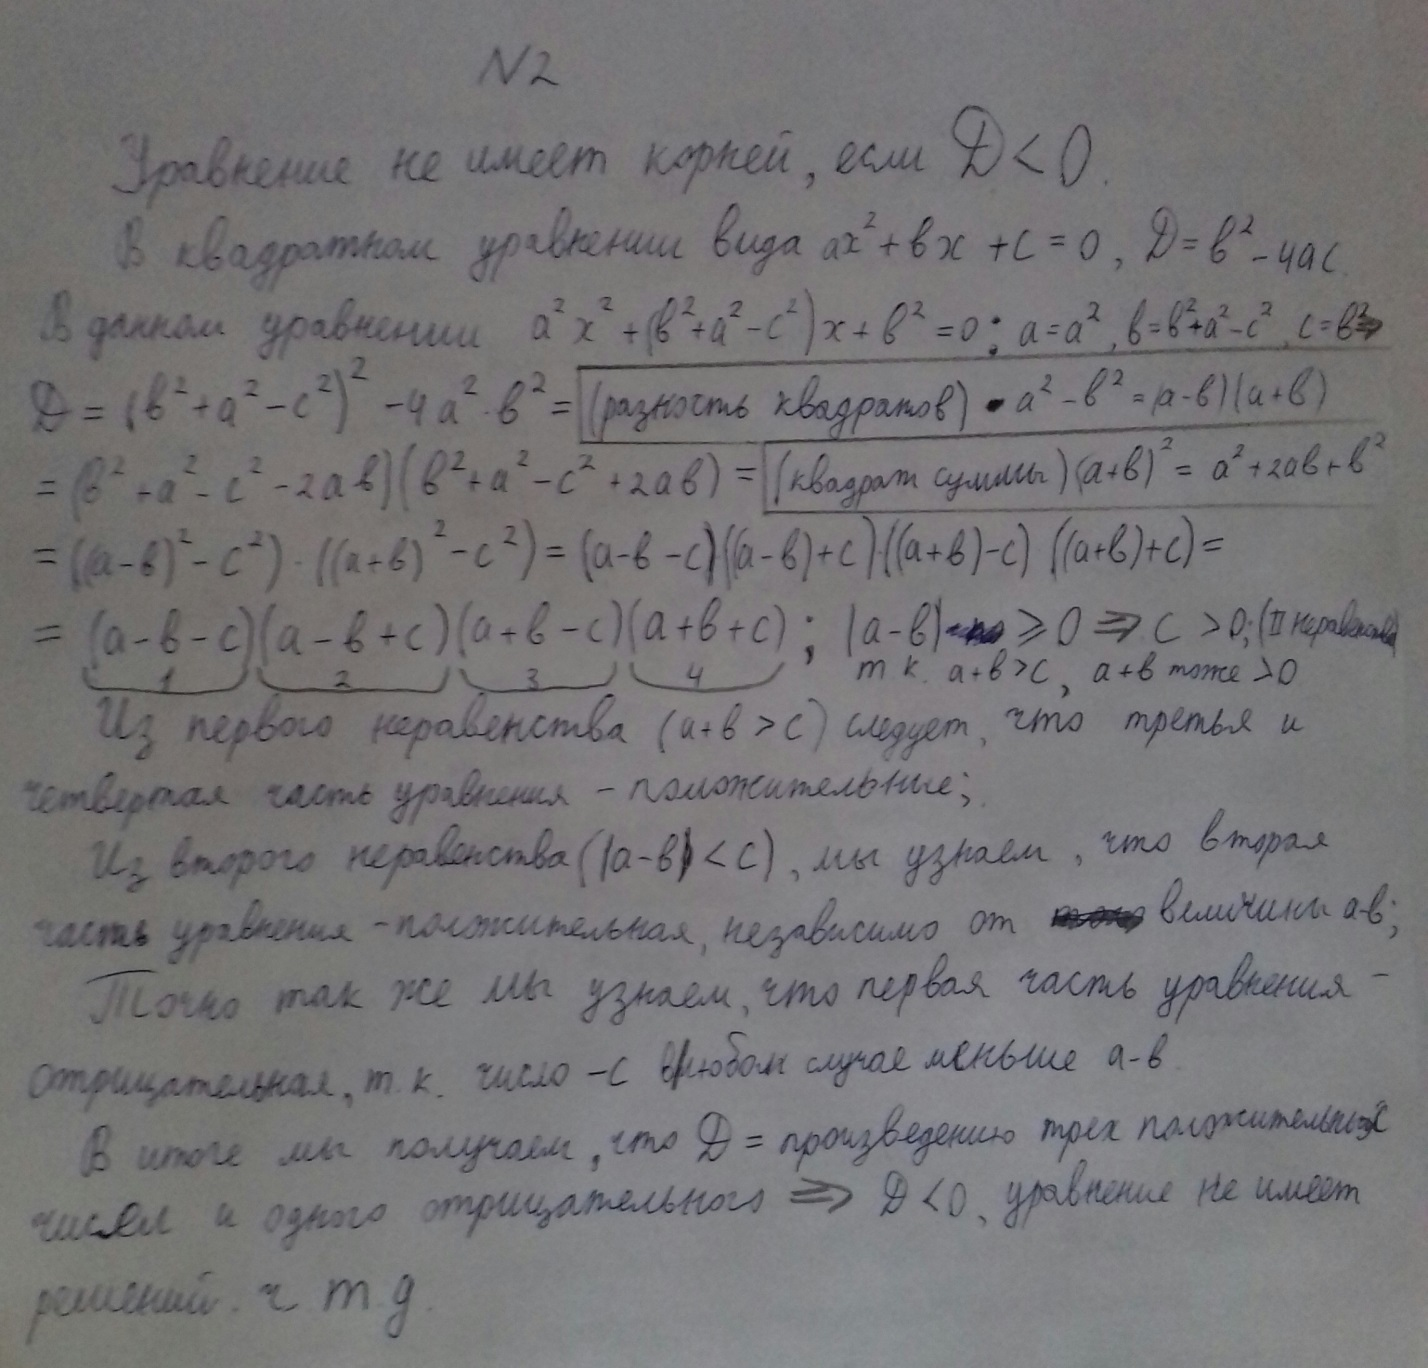 N2
Уравнение не имеет корней, если D < 0.
В квадратном уравнении вида ax² + вx + c = 0, D = в² - 4ac.
В данном уравнении a²x² + (в² + a² - c²)x + в² = 0; a = a², в = в² + a² - c², c = в² ⇒
D = (в² + a² - c²)² - 4a² · в² = (разность квадратов) • a² - в² = (a - в)(a + в)
= (в² + a² - c² - 2aв)(в² + a² - c² + 2aв) = (квадрат суммы) (a + в)² = a² + 2aв + в²
= ((a - в)² - c²) · ((a + в)² - c²) = (a - в - c)((a - в) + c) · ((a + в) - c) ((a + в) + c) =
= (a - в - c)(a - в + c)(a + в - c)(a + в + c); |a - в| ≥ 0 ⇒ c > 0; (II неравенство)
1 2 3 4 т.к. a + в > c, a + в тоже > 0
Из первого неравенства (a + в > c) следует, что третья и
четвертая часть уравнения - положительные;
Из второго неравенства (|a - в| < c), мы узнаем, что вторая
часть уравнения - положительная, независимо от величины a-в;
Точно так же мы узнаем, что первая часть уравнения -
отрицательная, т.к. число -c в любом случае меньше a-в
В итоге мы получаем, что D = произведению трех положительных
чисел и одного отрицательного ⇒ D < 0, уравнение не имеет
решений. ч т.д.